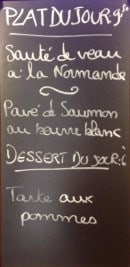 PLAT DU JOUR 9€50
Sauté de veau
à la Normande
Pavé de Saumon
au beurre blanc
DESSERT DU JOUR:
Tarte aux
pommes